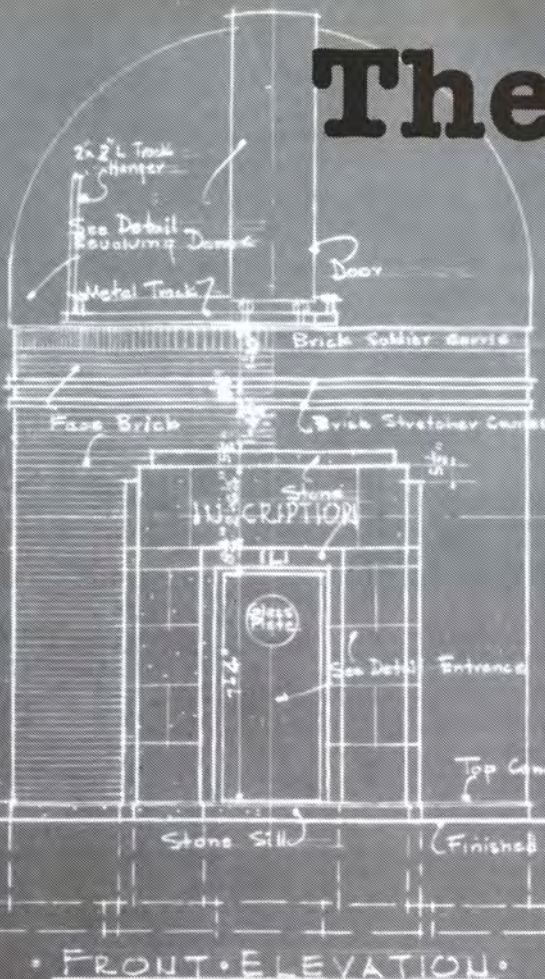 The
2"x 2" L Track
Hanger
See Detail
Revolving Dome
Door
Metal Track
Brick Soldier Course
Face Brick
Brick Stretcher Course
Stone
INSCRIPTION
Glass
Plate
7'-2"
See Detail Entrance
Top Con
Stone Sill
Finished
• FRONT • ELEVATION •